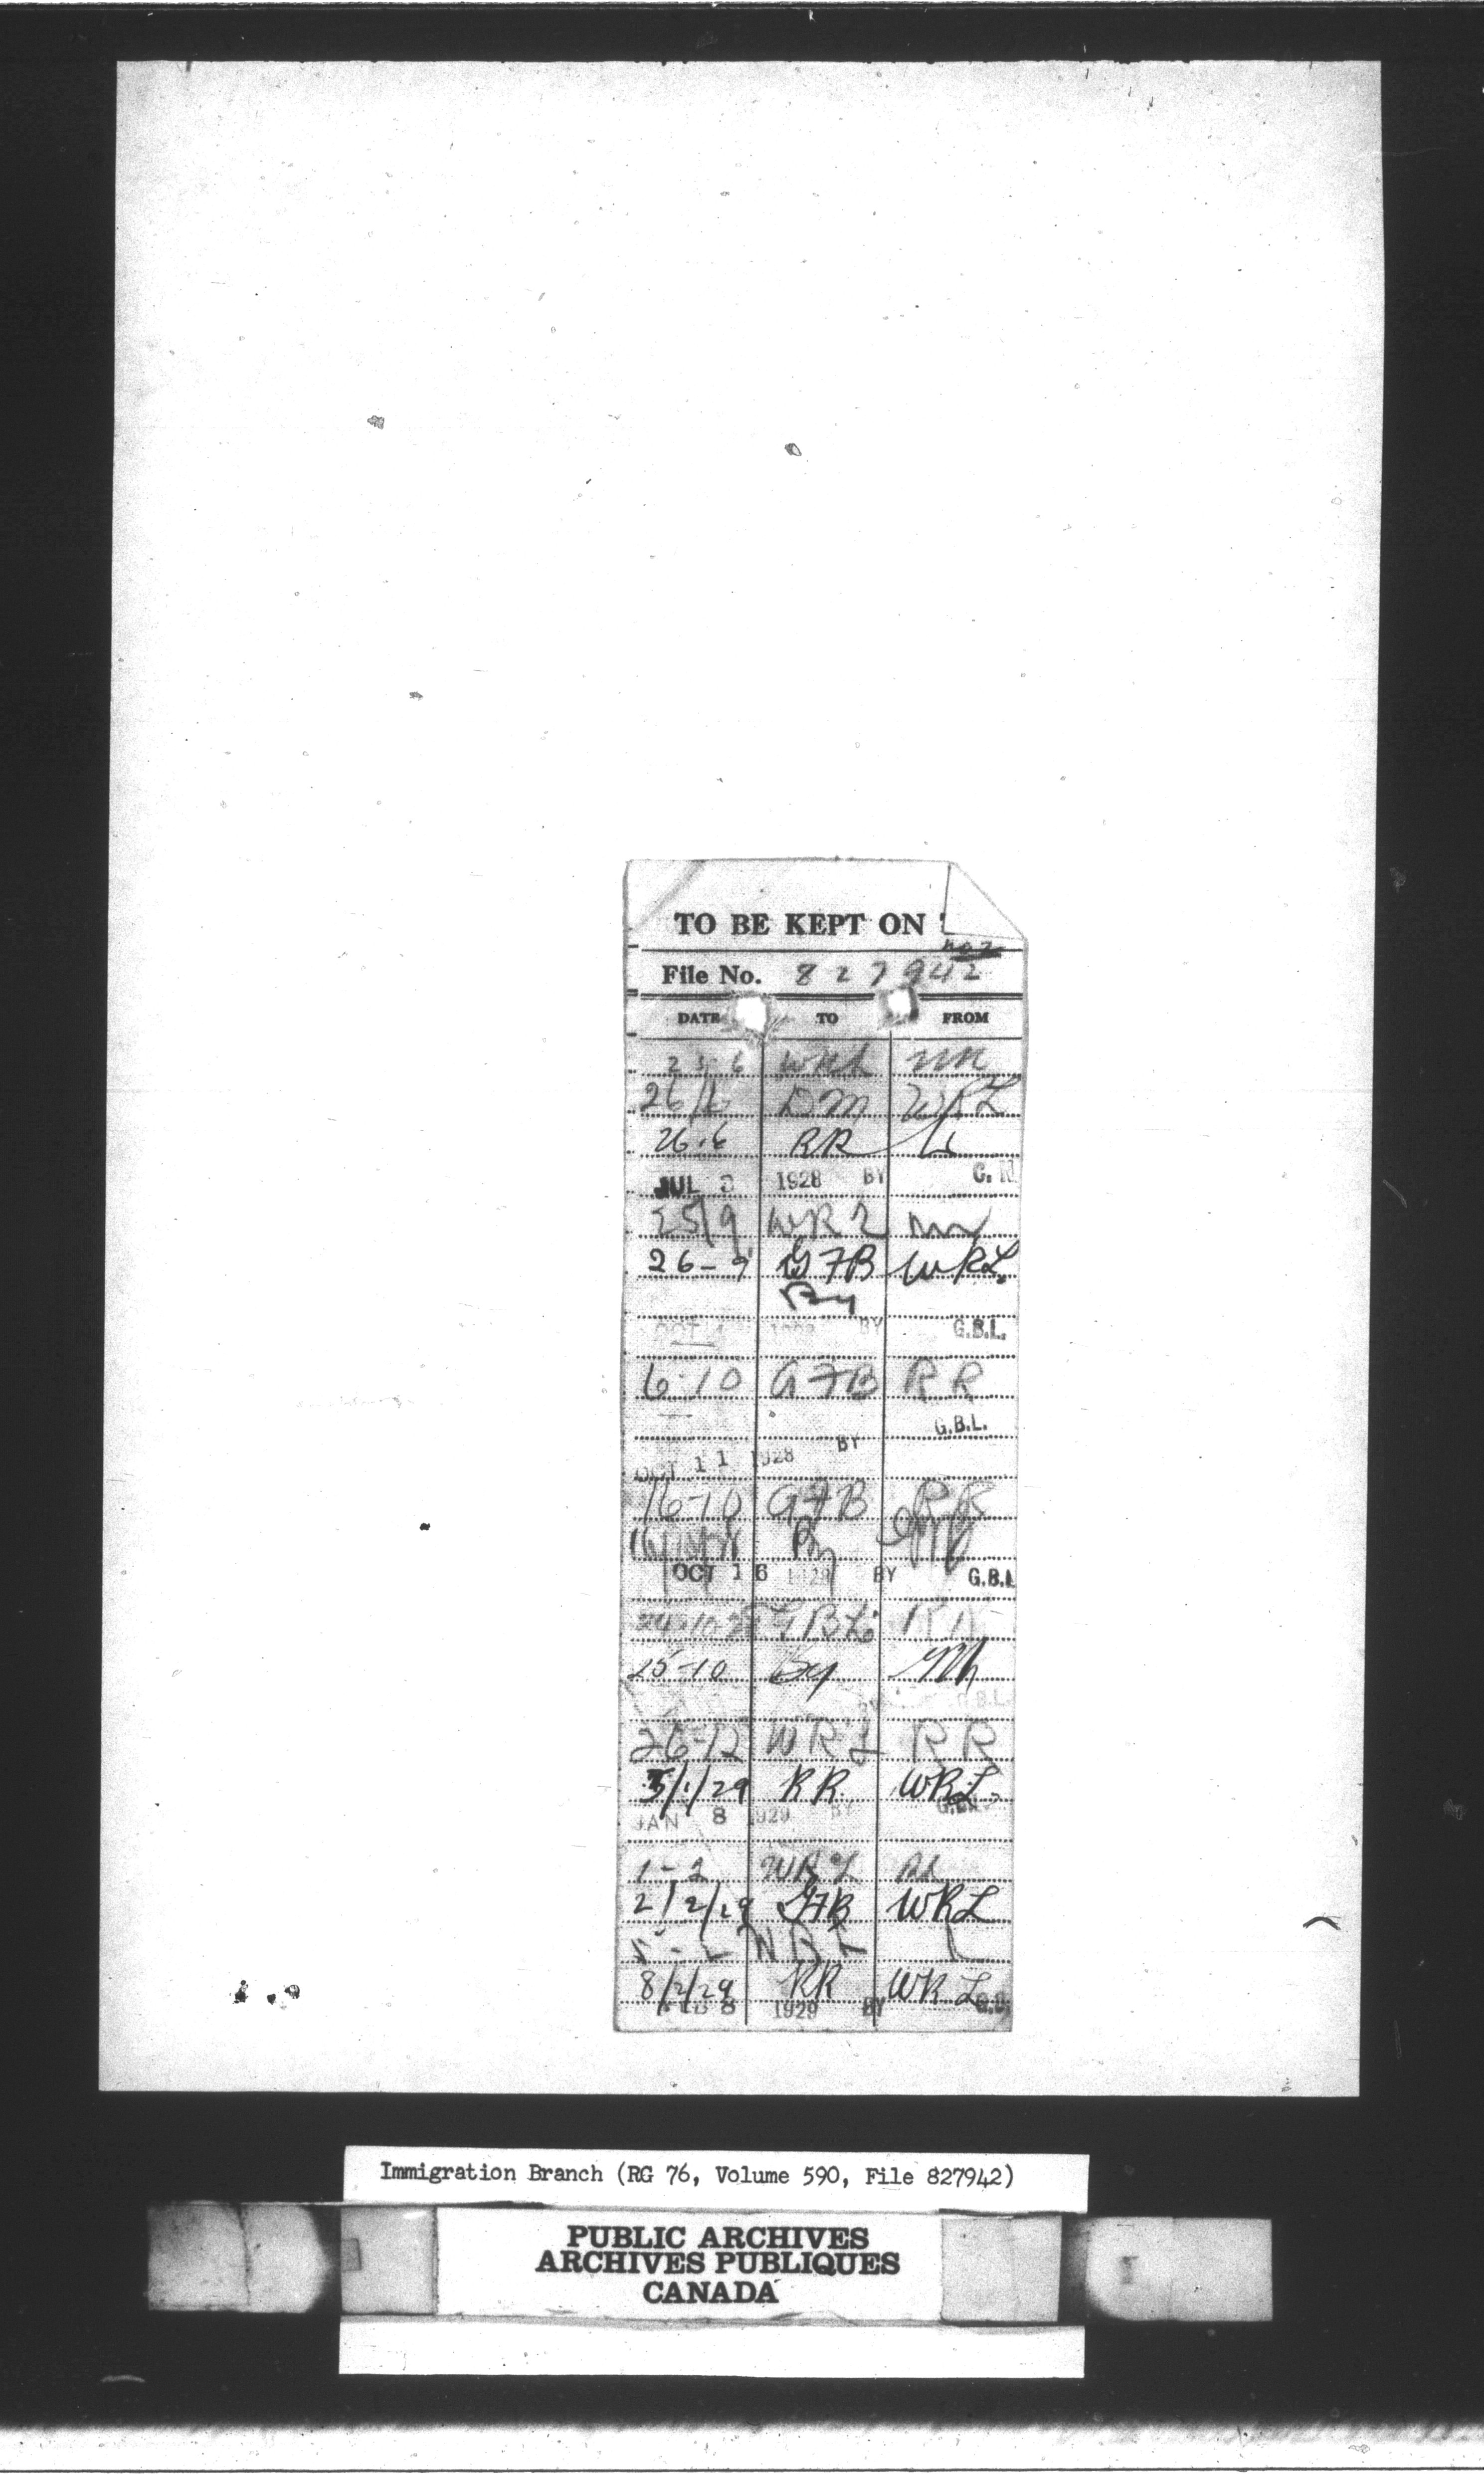 TO BE KEPT ON
No 2
File No. 827942
DATE TO FROM
25 6 WRL
26/6 DM WRL
26.6 RR
JUL 3 1928 BY C. R
25/9 WRL
26-9 GFB WRL
By
OCT 4 1928 BY G.B.L.
6-10 GFB RR
BY G.B.L.
OCT 11 1928
16-10 GFB RR
OCT 16 1928 BY G.B.L
24-10-28 GBL RR
25-10 By
BY G.B.L.
26-12 WRL RR
3/1/29 RR. WRL.
JAN 8 1929 BY G.B.L.
1-2 WRL
2/2/29 GFB WRL
5-2 WRL
8/2/29 RR WRL
FEB 8 1929 BY G.B.
Immigration Branch (RG 76, Volume 590, File 827942)
PUBLIC ARCHIVES
ARCHIVES PUBLIQUES
CANADA